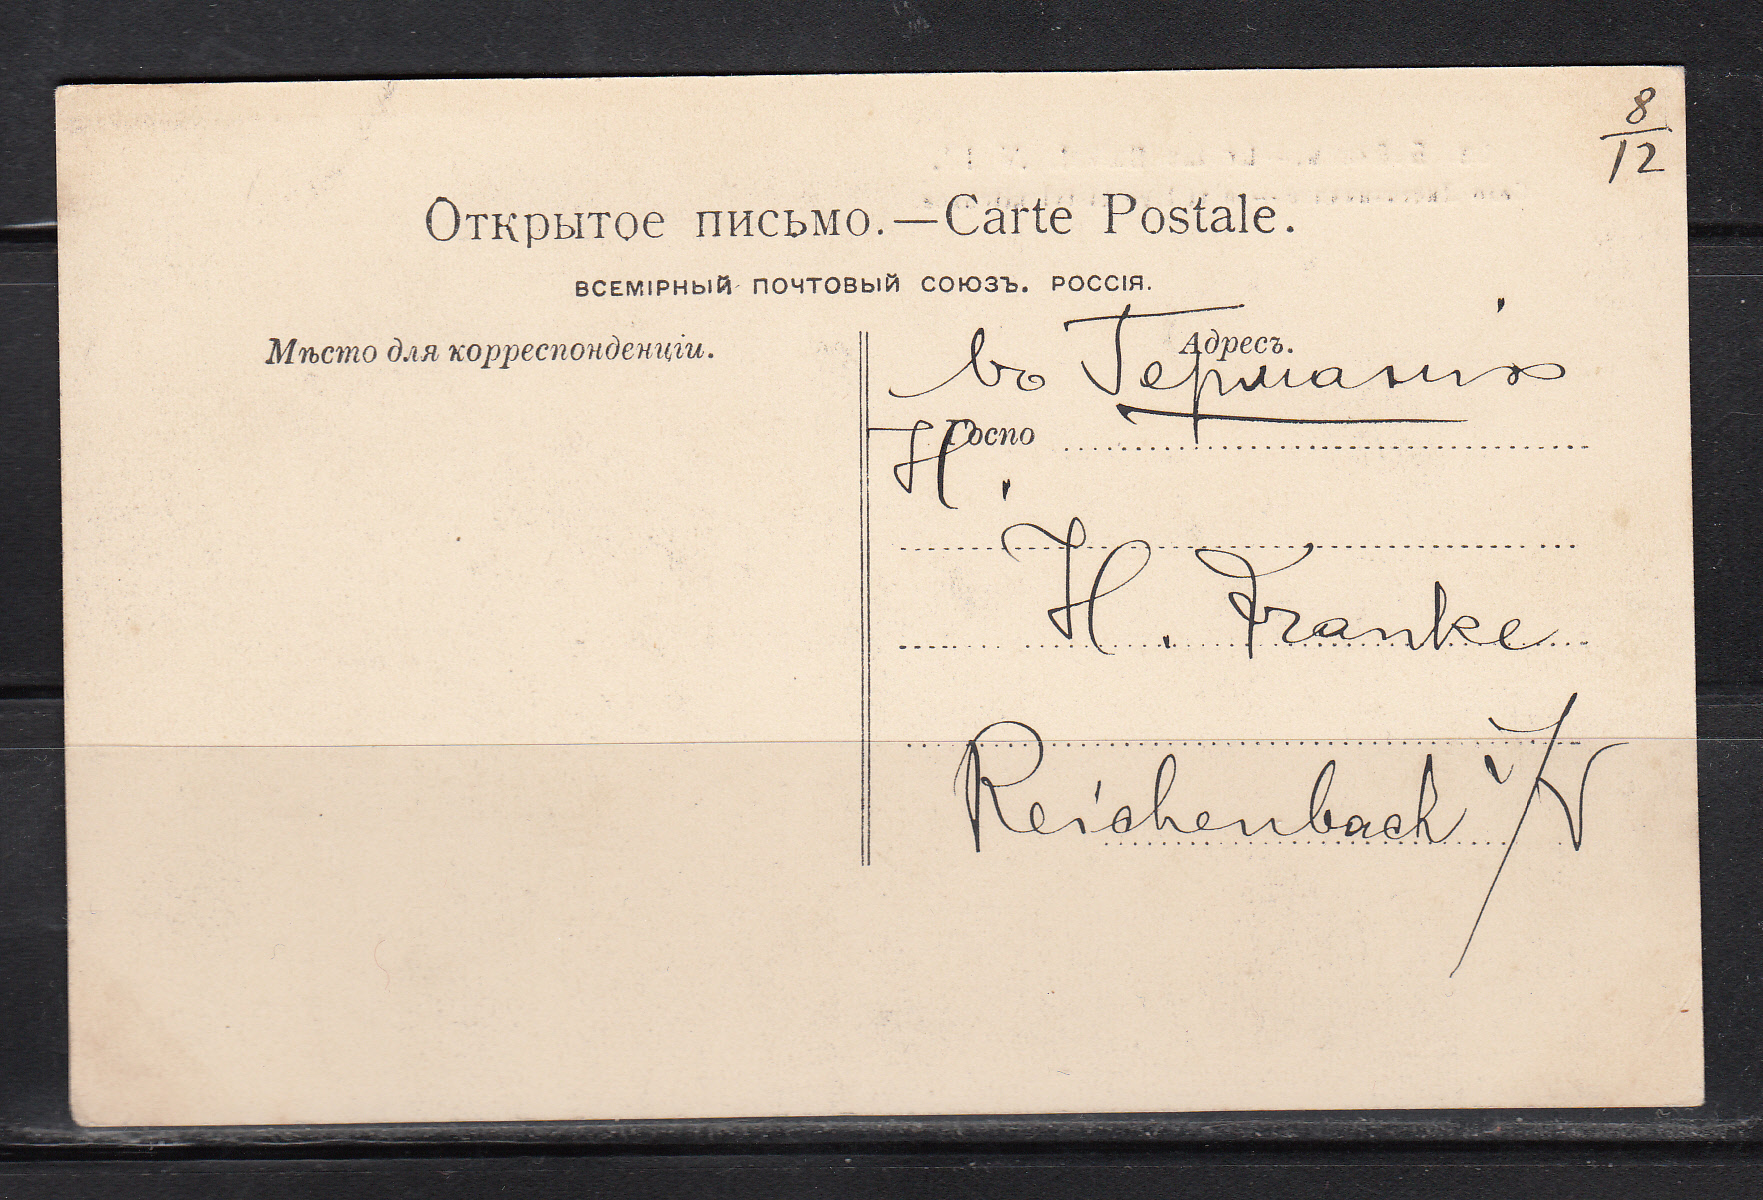 8/12
Открытое письмо.—Carte Postale.
ВСЕМІРНЫЙ ПОЧТОВЫЙ СОЮЗЪ. РОССІЯ.
Мѣсто для корреспонденціи.
Адресъ.
въ Германію
Госпо
H.
H. Franke
Reichenbach i/V